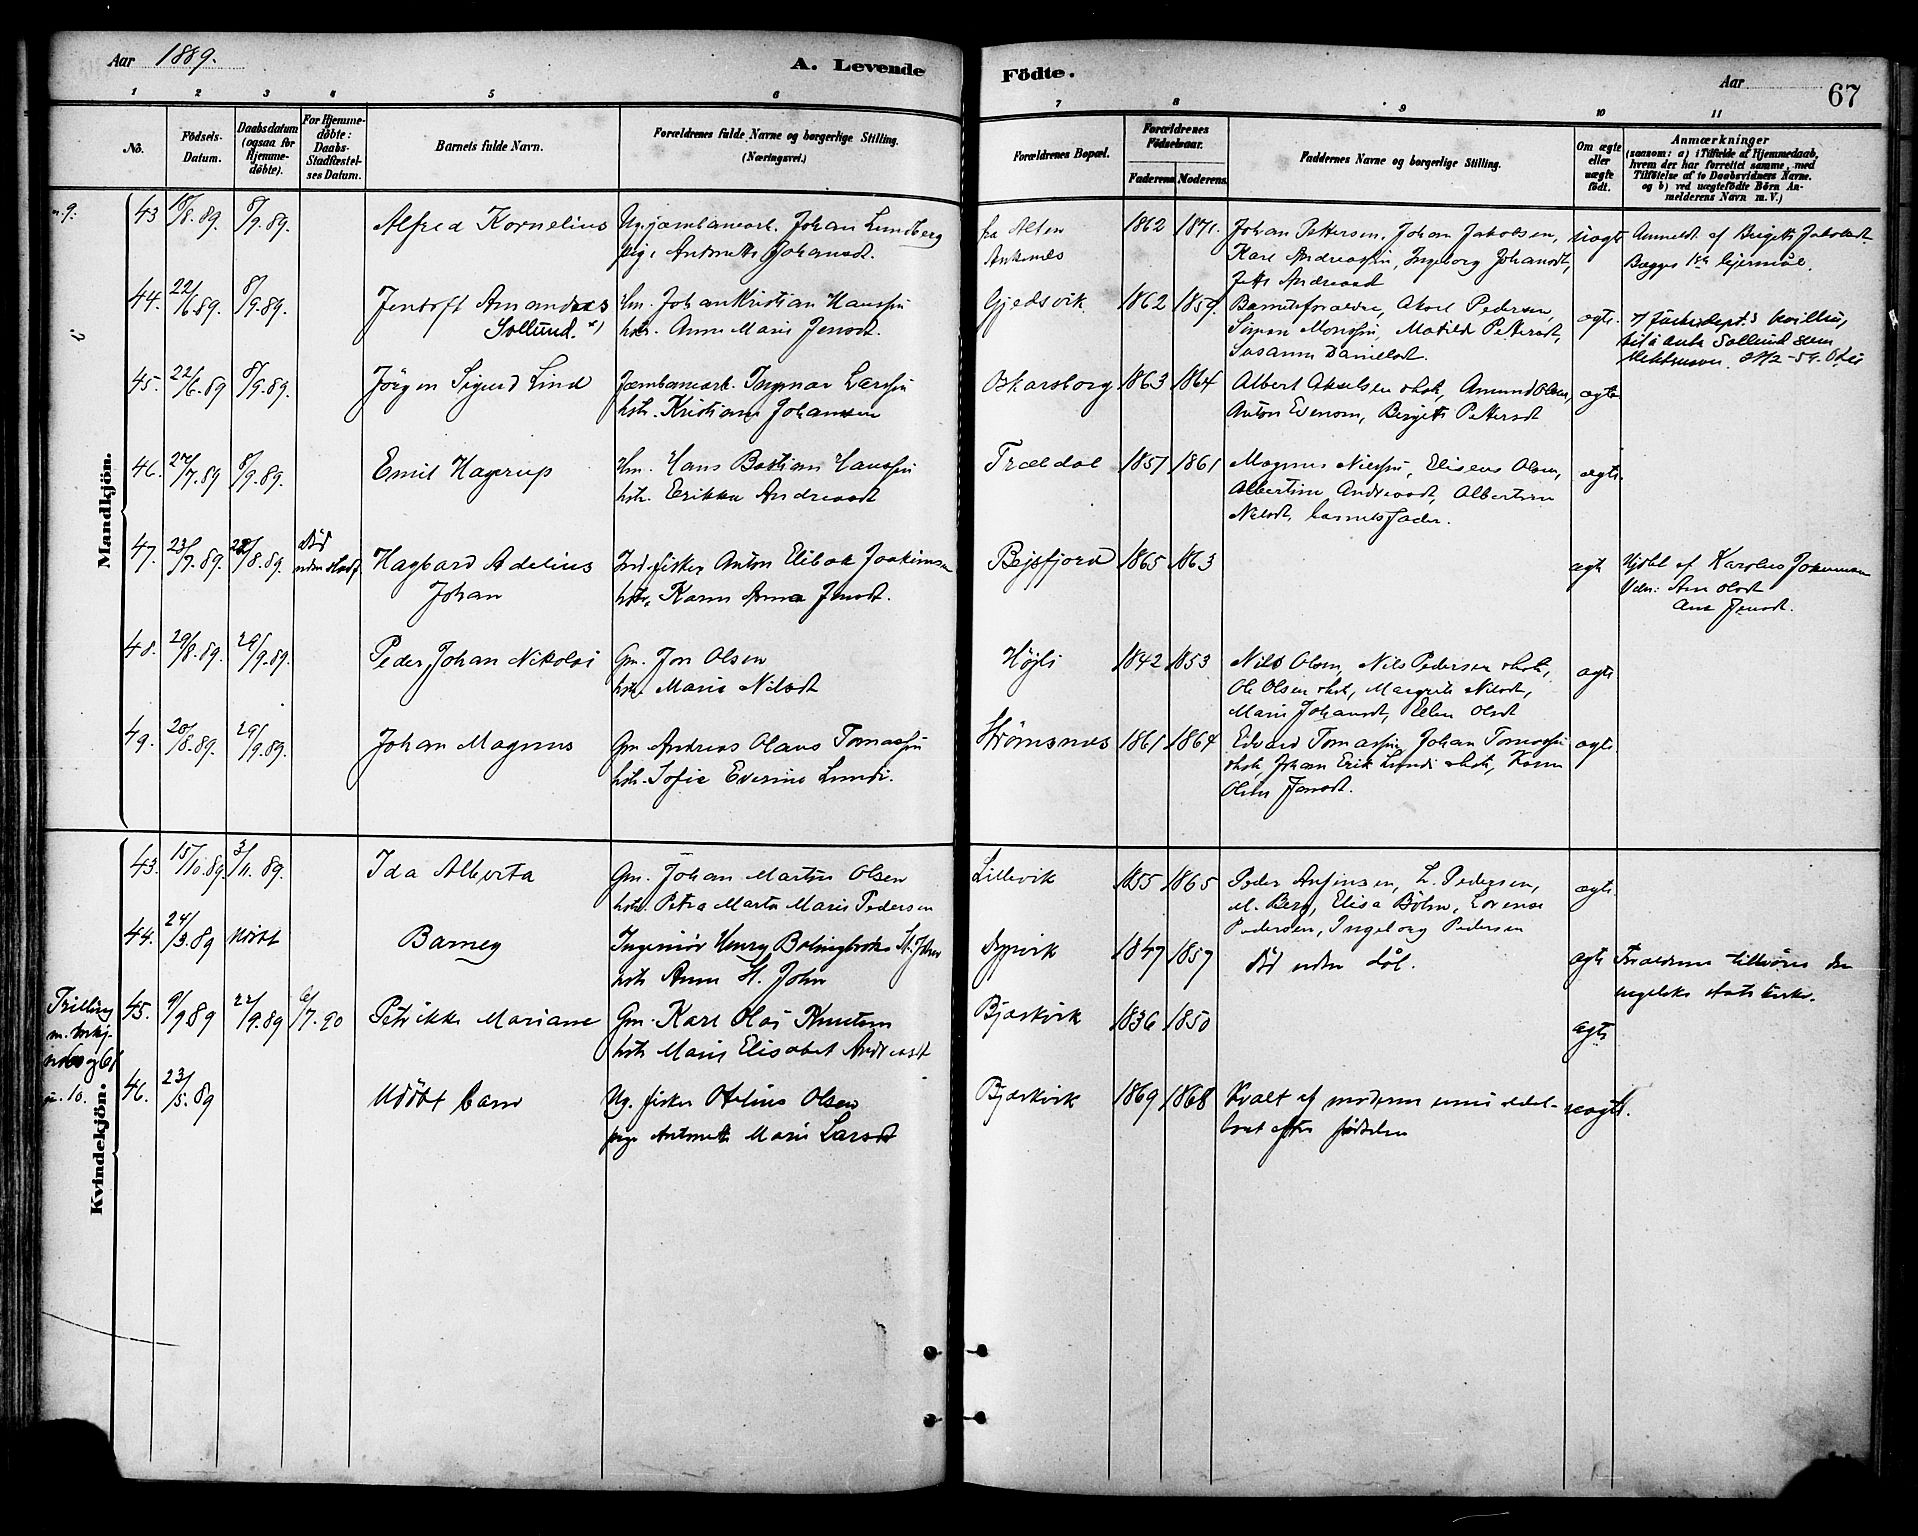 Aar 1889.
A. Levende
Födte.
Aar
67
1 2 3 4 5 6 7 8 9 10 11
No.
Födsels-
Datum.
Daabsdatum
(ogsaa for
Hjemme-
døbte).
For Hjemme-
døbte:
Daabs-
Stadfæstel-
ses Datum.
Barnets fulde Navn.
Forældrenes fulde Navne og borgerlige Stilling.
(Næringsvei.)
Forældrenes Bopæl.
Forældrenes
Födselsaar.
Faderens Moderens.
Faddernes Navne og borgerlige Stilling.
Om ægte
eller
uægte
födt.
Anmærkninger
(saasom: a) i Tilfælde af Hjemmedaab,
hvem der har forrettet samme, med
Tilföielse af to Daabsvidners Navne.
og b) ved uægtefödte Börn An-
melderens Navn m.V.)
Mandkjön.
43 /8.89. 8/9.89. Alfred Kornelius Ug. jærnbanearb. Johan Lundberg
pige Antonette Johansdt.
fra Alten
Ankenes
1862 1871. Johan Pettersen, Johan Jakobsen,
Karl Andreassen, Ingeborg Johansdt,
Jette Andreasd
uægte Anmeldt af Bergitte Jakobsdt
Begges 1ste lejermål.
44. 22/6.89. 8/9.89. Jentoft Amandus
Sollund. *)
Hm. Johan Kristian Hanssen
hstr. Anne Marie Jensdt.
Gjedsvik 1862 1859. Barnets forældre, Aksel Pedersen,
Simon Monssen, Matilde Pettersdt,
Susanne Danielsdt.
ægte.
Sollund som
45. 22/6.89 8/9.89. Jörgen Sigurd Lind Jærnbanearb. Ingmar Larssen
hstr. Kristiane Johansen
Oskarsborg 1863 1864 Albert Akselsen o hstr, Amund Olsen,
Anton Evensen, Bergitte Pettersdt
ægte
46. 27/7.89 8/9.89. Emil Hagerup Hm. Hans Bastian Hanssen
hstr. Erikka Andreasdt
Trældal 1857. 1861 Magnus Nilssen, Eliseus Olsen,
Albertine Andreasdt, Albertine
Nilsdt, barnets fader.
ægte.
47. 23/7.89. 28/8.89. Död
uden stadf.
Hagbard Adelius
Johan
Inds. fisker Anton Elibak Joakimsen
hstr. Karen Anna Jensdt.
Bejsfjord 1865 1863 ægte Hjdbt af Karolus Johannesen
Vidn: Ane Olsdt
Ane Jensdt.
48. 29/8.89. 29/9.89. Peder Johan Nikolai Gm. Jon Olsen
hstr. Marie Nilsdt
Højli 1842 1853 Nils Olsen, Nils Pedersen o hstr,
Ole Olsen o hstr, Margrete Nilsdt,
Marie Johansdt, Ellen Olsdt
ægte
49. 20/8.89. 29/9.89. Johan Magnus Gm Andreas Olaus Tomassen
hstr. Sofie Everine Lundi.
Strømsnes 1861 1864 Edvard Tomassen, Johan Tomassen
o hstr, Johan Erik Lundi o hstr, Karen
Oline Jensdt.
ægte
Kvindekjön.
43. 15/10.89 3/11.89. Ida Alberta Gm. Johan Martin Olsen
hstr. Petra Marta Marie Pedersen
Lillevik 1855 1865 Peder Anfinsen, L. Pedersen,
M. Berg, Elisa Böhm, Lorense
Pedersen, Ingeborg Pedersen
ægte.
44. 24/3.89 Udöbt Barney Ingeniör Henry Bolingbroke St. John
hstr Anne St. John
Dypvik 1847 1857 död uden dåb. ægte Forældrene tilhörer den
engelske statskirke.
Trilling
45. 9/9 89 22/9.89 6/7.90 Petrikke Mariane Gm. Karl Olai Knutsen
hstr Marie Elisabet Andreasdt
Bjærkvik 1836 1850 ægte
46. 23/5.89 Udöbt barn Ug. fisker Otelius Olsen
pige Antonette Marie Larsdt
Bjærkvik 1869 1868 Kvalt af moderen umiddel-
bart efter födselen
uægte.